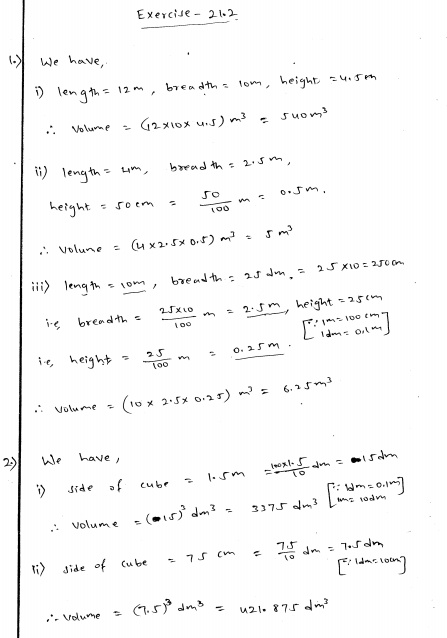 Exercise - 21.2
1.) We have,
i) length = 12m, breadth = 10m, height = 4.5m
∴ Volume = (12x10x4.5) m³ = 540m³
ii) length = 4m, breadth = 2.5m,
height = 50cm = 50/100 m = 0.5m.
∴ Volume = (4x2.5x0.5) m³ = 5 m³
iii) length = 10m, breadth = 25dm. = 25x10 = 250cm
i.e, breadth = 25x10/100 m = 2.5m, height = 25cm
i.e, height = 25/100 m = 0.25m. [∵ 1m=100cm 1dm=0.1m]
∴ Volume = (10 x 2.5x 0.25) m³ = 6.25m³
2.) We have,
i) side of cube = 1.5m = 100x1.5/10 dm = 15dm
∴ Volume = (15)³ dm³ = 3375 dm³ [∵ 1dm=0.1m 1m=10dm]
ii) side of cube = 75 cm = 75/10 dm = 7.5dm
[∵ 1dm=10cm]
∴ Volume = (7.5)³ dm³ = 421.875 dm³